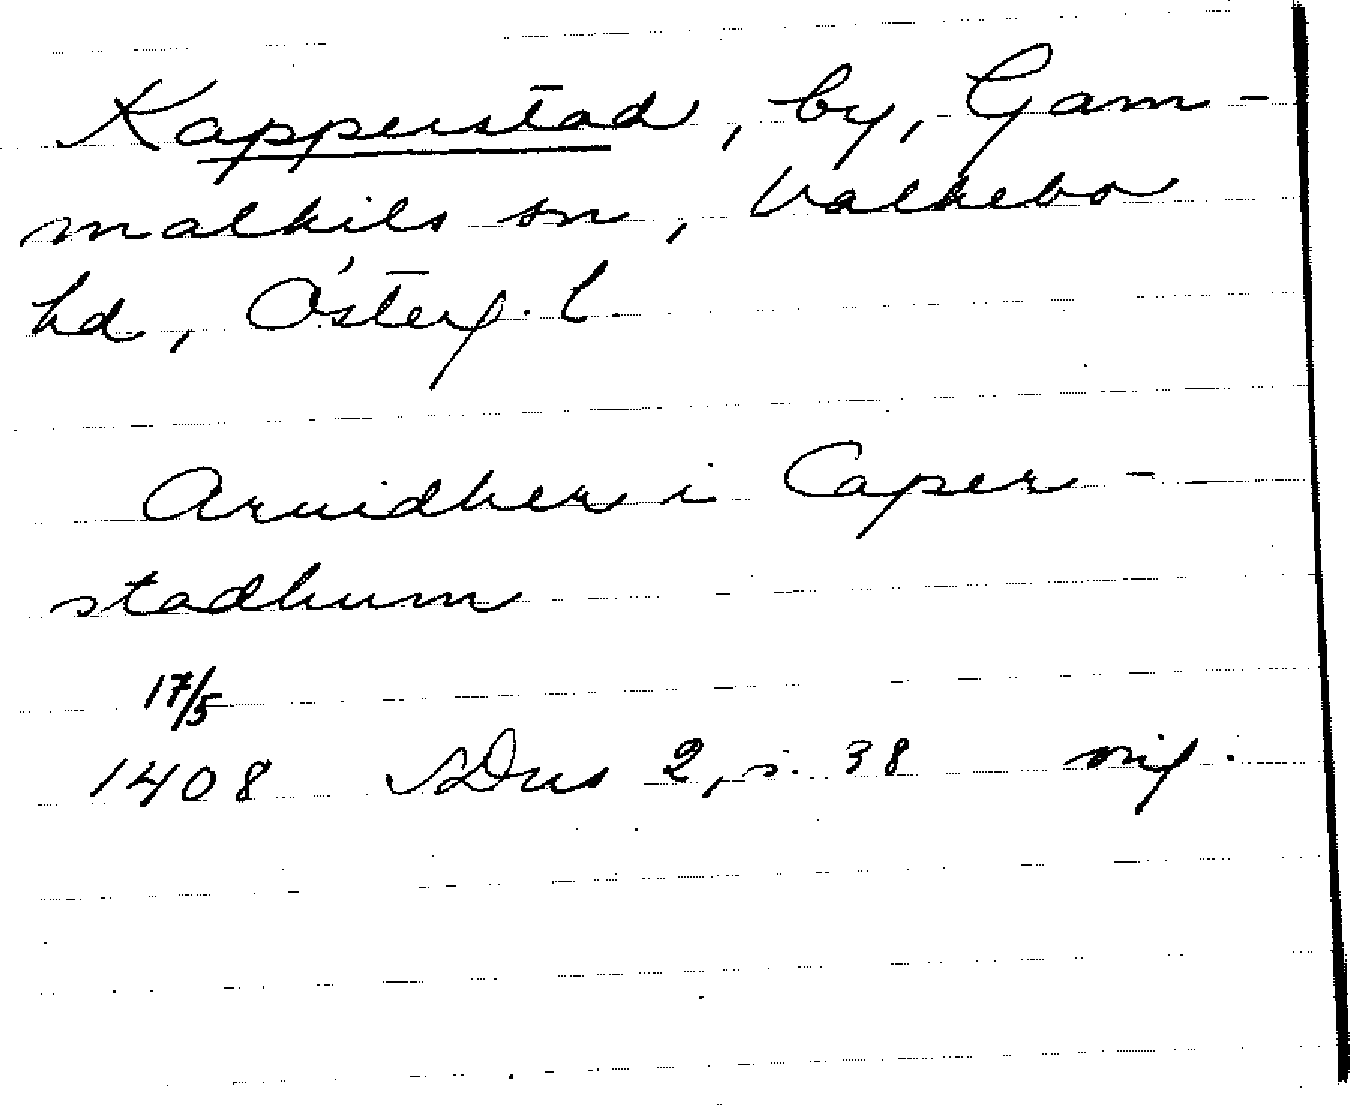 Kapperstad, by, Gam-
malkils sn, Valkebo
hd, Österg. l.
Aruidher i Caper-
stadhum
17/5
1408 SDns 2, s. 38 orig.